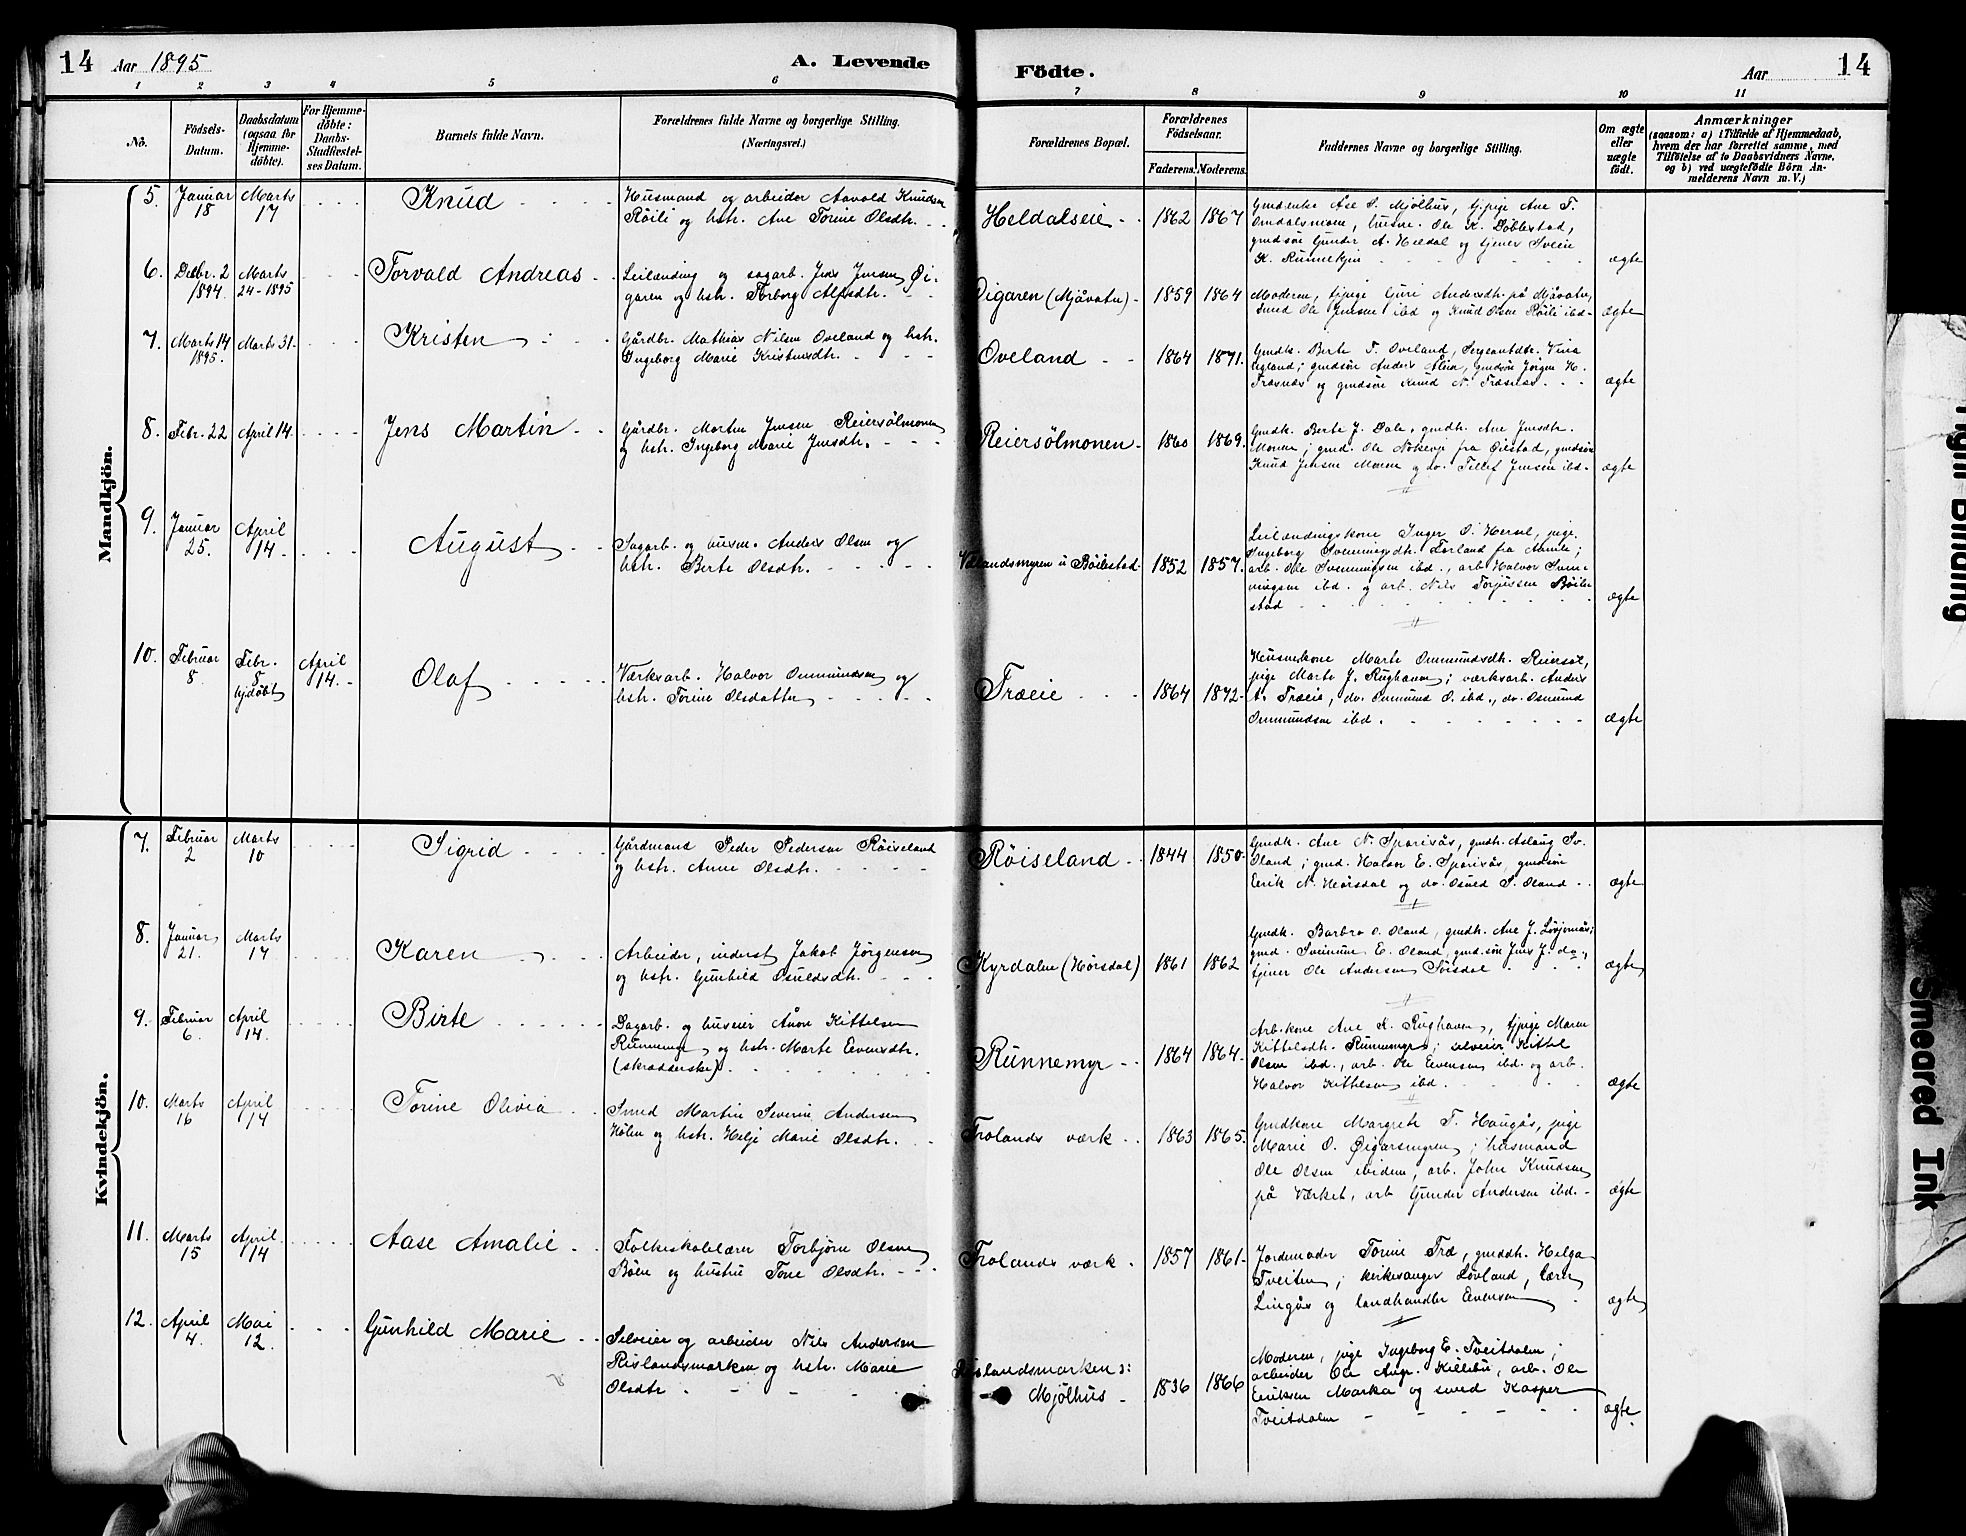 14 Aar 1895. A. Levende Födte. Aar 14
1 2 3 4 5 6 7 8 9 10 11
No. Födsels-Datum. Daabsdatum (ogsaa for Hjemmedöbte). For Hjemmedöbte: Daabs-Stadfæstelses Datum. Barnets fulde Navn. Forældrenes fulde Navne og borgerlige Stilling. (Næringsvei.) Forældrenes Bopæl. Forældrenes Födselsaar. Faderens. Moderens. Faddernes Navne og borgerlige Stilling. Om ægte eller uægte födt. Anmærkninger (saasom: a) i Tilfælde af Hjemmedaab, hvem der har forrettet samme, med Tilföielse af to Daabsvidners Navne, og b) ved uægtefödte Börn Anmelderens Navn m. V.)
Mandkjön.
5. Januar 18 Marts 17 Knud
Husmand og arbeider Aavald Knudsen
Röili og hstr. Ane Torine Olsdtr.
Heldalseie 1862 1867
gmdsön Gunder A. Heldal og tjener Sveie
ægte
6. Decbr. 2 1894. Marts 24-1895 Torvald Andreas
Leilænding og sagarb. Jens Jensen Øi-
garen og hstr. Torborg Alfsdtr.
Øigaren (Mjåvatn) 1859 1864
Moderen, tjpige Guri Andersdtr. på Mjåvatn,
Smed Ole Jensen ibd og Knud Olsen Röili ibd.
ægte
7. Marts 14 1895. Marts 31. Kristen
Gårdbr. Mathias Nilsen Oveland og hstr.
Ingeborg Marie Kristensdtr.
Oveland 1864 1871.
Gmdk. Berte T. Oveland, Sergeantdtr.
gmdsön Jörgen H.
Træsnæs og gmdsön Knud N. Træsnæs.
ægte
8. Febr. 22 April 14. Jens Martin
Gårdbr. Morten Jensen Reiersölmonen
og hstr. Ingeborg Marie Jensdtr.
Reiersölmonen 1860 1869.
Gmdk. Berte J. Dale, gmdtr. Ane Jensdtr.
Monen; gmd. Ole fra Øiestad, gmdsön
Knud Jensen Monen og do. Tellef Jensen ibd.
ægte
9. Januar 25. April 14. August
Sagarb. og husm. Anders Olsen og
hstr. Berte Olsdtr.
Vælandsmyren u. Böilestad 1852 1857.
Leilændingskone Inger O. pige
Ingeborg Svenningsdtr. Torland fra
arb. Ole Svenningsen ibd., arb Halvor Sven-
ningsen ibd. og arb. Nils Torjussen Böile-
stad
ægte
10. Februar 8. Febr. 8 hjdöbt April 14. Olaf
Værksarb. Halvor Ommundsen og
hstr. Torine Olsdatter
Træeie 1864 1872.
Husmkone Marte Ommundsdtr. Reiersöl,
pige Marte J. Rughaven; værksarb. Anders
Træeie, do. Ommund O. ibd., do. Osmund
Ommundsen ibd.
ægte
Kvindekjön.
7. Februar 2 Marts 10 Sigrid
Gårdmand Peder Pedersen Röiseland
og hstr. Anne Olsdtr.
Röiseland 1844 1850.
Gmdk. Ane N. Sparsås, gmdtr. Aslaug Sv.
Oland; gmd. Halvor E. Sparsås, gmdsön
Eerik N. Hörsdal og do. Osuld S. Oland
ægte
8. Januar 21. Marts 17 Karen
Arbeider, inderst Jakob Jörgensen
og hstr. Gunhild Osuldsdtr.
Kyrdalen (Hörsdal) 1861 1862
Gmdk. Barbro O. Oland, gmdtr. Ane J.
gmd. E. Oland, gmd.sön Jens J. do.,
tjener Ole Andersen
ægte
9. Februar 6. April 14. Birte
Dagarb. og huseier Kittelsen
Runnemyr og hstr. Marte Eevensdtr.
(skrædderske)
Runnemyr 1864 1864.
Arb.kone Ane K. Rughaven, tjpige Maren
Kittelsdtr. Runnemyr; selveier Kittel
Olsen ibd., arb. Ole Eevensen ibd. og arb.
Halvor Kittelsen ibd.
ægte
10. Marts 16 April 14 Torine Olivia
Smed Martin Severin Andersen
Hölen og hstr. Helje Marie Olsdtr.
Frolands værk 1863 1865.
Gmdkone Margrete T. Haugås, pige
Marie O. Øigarsmyren; husmand
Ole Olsen ibidem, arb. John Knudsen
på Værket, arb Gunder Andersen ibd.
ægte
11. Marts 15 April 14 Aase Amalie
Folkeskolelærer Torbjörn Olsen
Böen og hustru Tone Olsdtr.
Frolands værk 1857 1861.
Jordemoder Torine Træ, gmddtr. Helga
Tveiten; kirkesanger Lövland, lærer
Lingås og landhandler Eevensen
ægte
12. April 4. Mai 12. Gunhild Marie
Selveier og arbeider Nils Andersen
Rislandsmarken og hstr. Marie
Olsdtr
Rislandsmarken ɔ:
Mjölhus 1836 1866
Moderen, pige Ingeborg E. Tveitdalen;
arbeider Ole Aug. Killebu, arb. Ole
Eeriksen Marka og smed Kasper
Tveitdalen
ægte.
Tight Binding
Smeared Ink